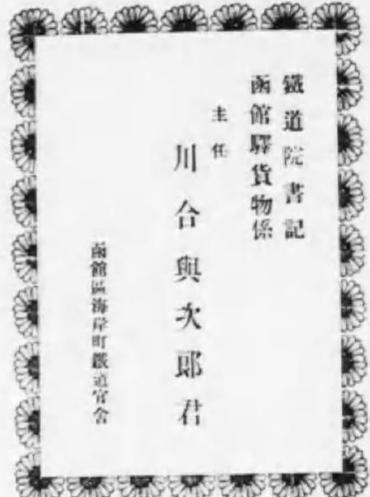 鐵道院書記
函館驛貨物係
主任
川合與次郎君
函館區海岸町鐵道官舍